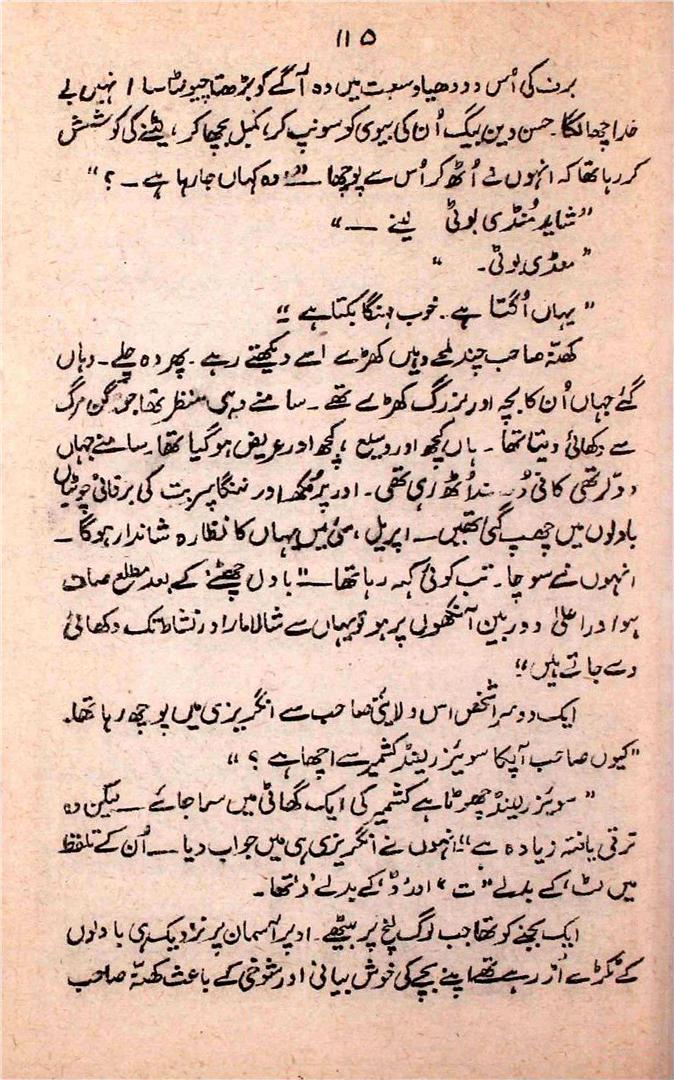 ۱۱۵
برف کی اُس دودھیا وسعت میں وہ آگے کو بڑھتا چیونٹا سا انہیں بے
حد اچھا لگا۔ حسن دین بیگ اُن کی بیوی کو سونپ کر، کمبل بچھا کر، لیٹنے کی کوشش
کر رہا تھا کہ انہوں نے اُٹھ کر اُس سے پوچھا — "وہ کہاں جا رہا ہے — ؟"
"شاید مُنڈی بوٹی لینے — "
"منڈی بوٹی۔ "
"یہاں اُگتا ہے۔ خوب مہنگا بکتا ہے"
کھنّہ صاحب چند لمحے وہیں کھڑے اسے دیکھتے رہے۔ پھر وہ چلے۔ وہاں
گئے جہاں اُن کا بچہ اور بزرگ کھڑے تھے۔ سامنے وہی منظر تھا جو گن مرگ
سے دکھائی دیتا تھا۔ ہاں کچھ اور وسیع، کچھ اور عریض ہو گیا تھا۔ سامنے جہاں
وولر تھی کافی دُھند اُٹھ رہی تھی۔ اور ہرمُکھ اور ننگا پربت کی برفانی چوٹیاں
بادلوں میں چھپ گئی تھیں — اپریل، مئی میں یہاں کا نظارہ شاندار ہوگا —
انہوں نے سوچا۔ تب کوئی کہہ رہا تھا — "بادل چھٹنے کے بعد مطلع صاف
ہو اور اعلیٰ دوربین آنکھوں پر ہو تو یہاں سے شالامار اور نشاط تک دکھائی
دے جاتے ہیں"
ایک دوسرا شخص اس ولایتی صاحب سے انگریزی میں پوچھ رہا تھا۔
"کیوں صاحب آپکا سویٹزرلینڈ کشمیر سے اچھا ہے ؟"
"سویٹزرلینڈ چھوٹا ہے کشمیر کی ایک گھاٹی میں سما جائے — لیکن وہ
ترقی یافتہ زیادہ ہے" انہوں نے انگریزی ہی میں جواب دیا — اُن کے تلفظ
میں 'ٹ' کے بدلے "ت" اور 'ڈ' کے بدلے 'د' تھا۔
ایک بجنے کو تھا جب لوگ لنچ پر بیٹھے۔ اوپر آسمان پر نزدیک ہی بادلوں
کے ٹکڑے اُڑ رہے تھے اپنے بچے کی خوش بیانی اور شوخی کے باعث کھنّہ صاحب